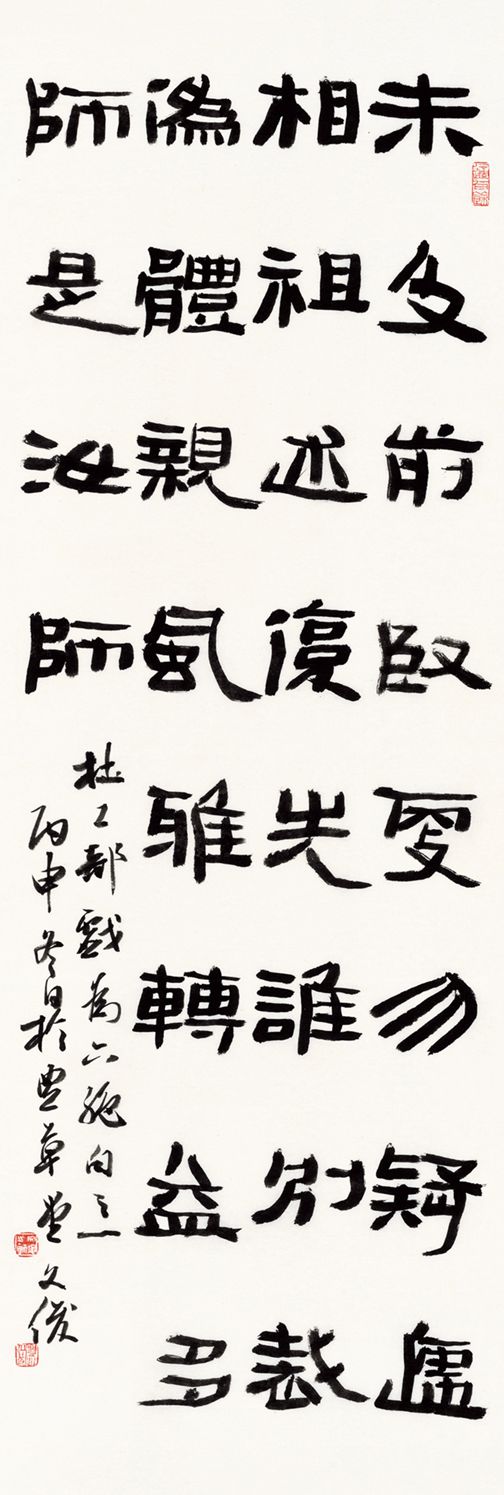 未及前臤更勿疑遞
相祖述復先誰別裁
僞體親風雅轉益多
師是汝師
杜工部戲為六絕句之一
丙申冬日於豐草堂文俊